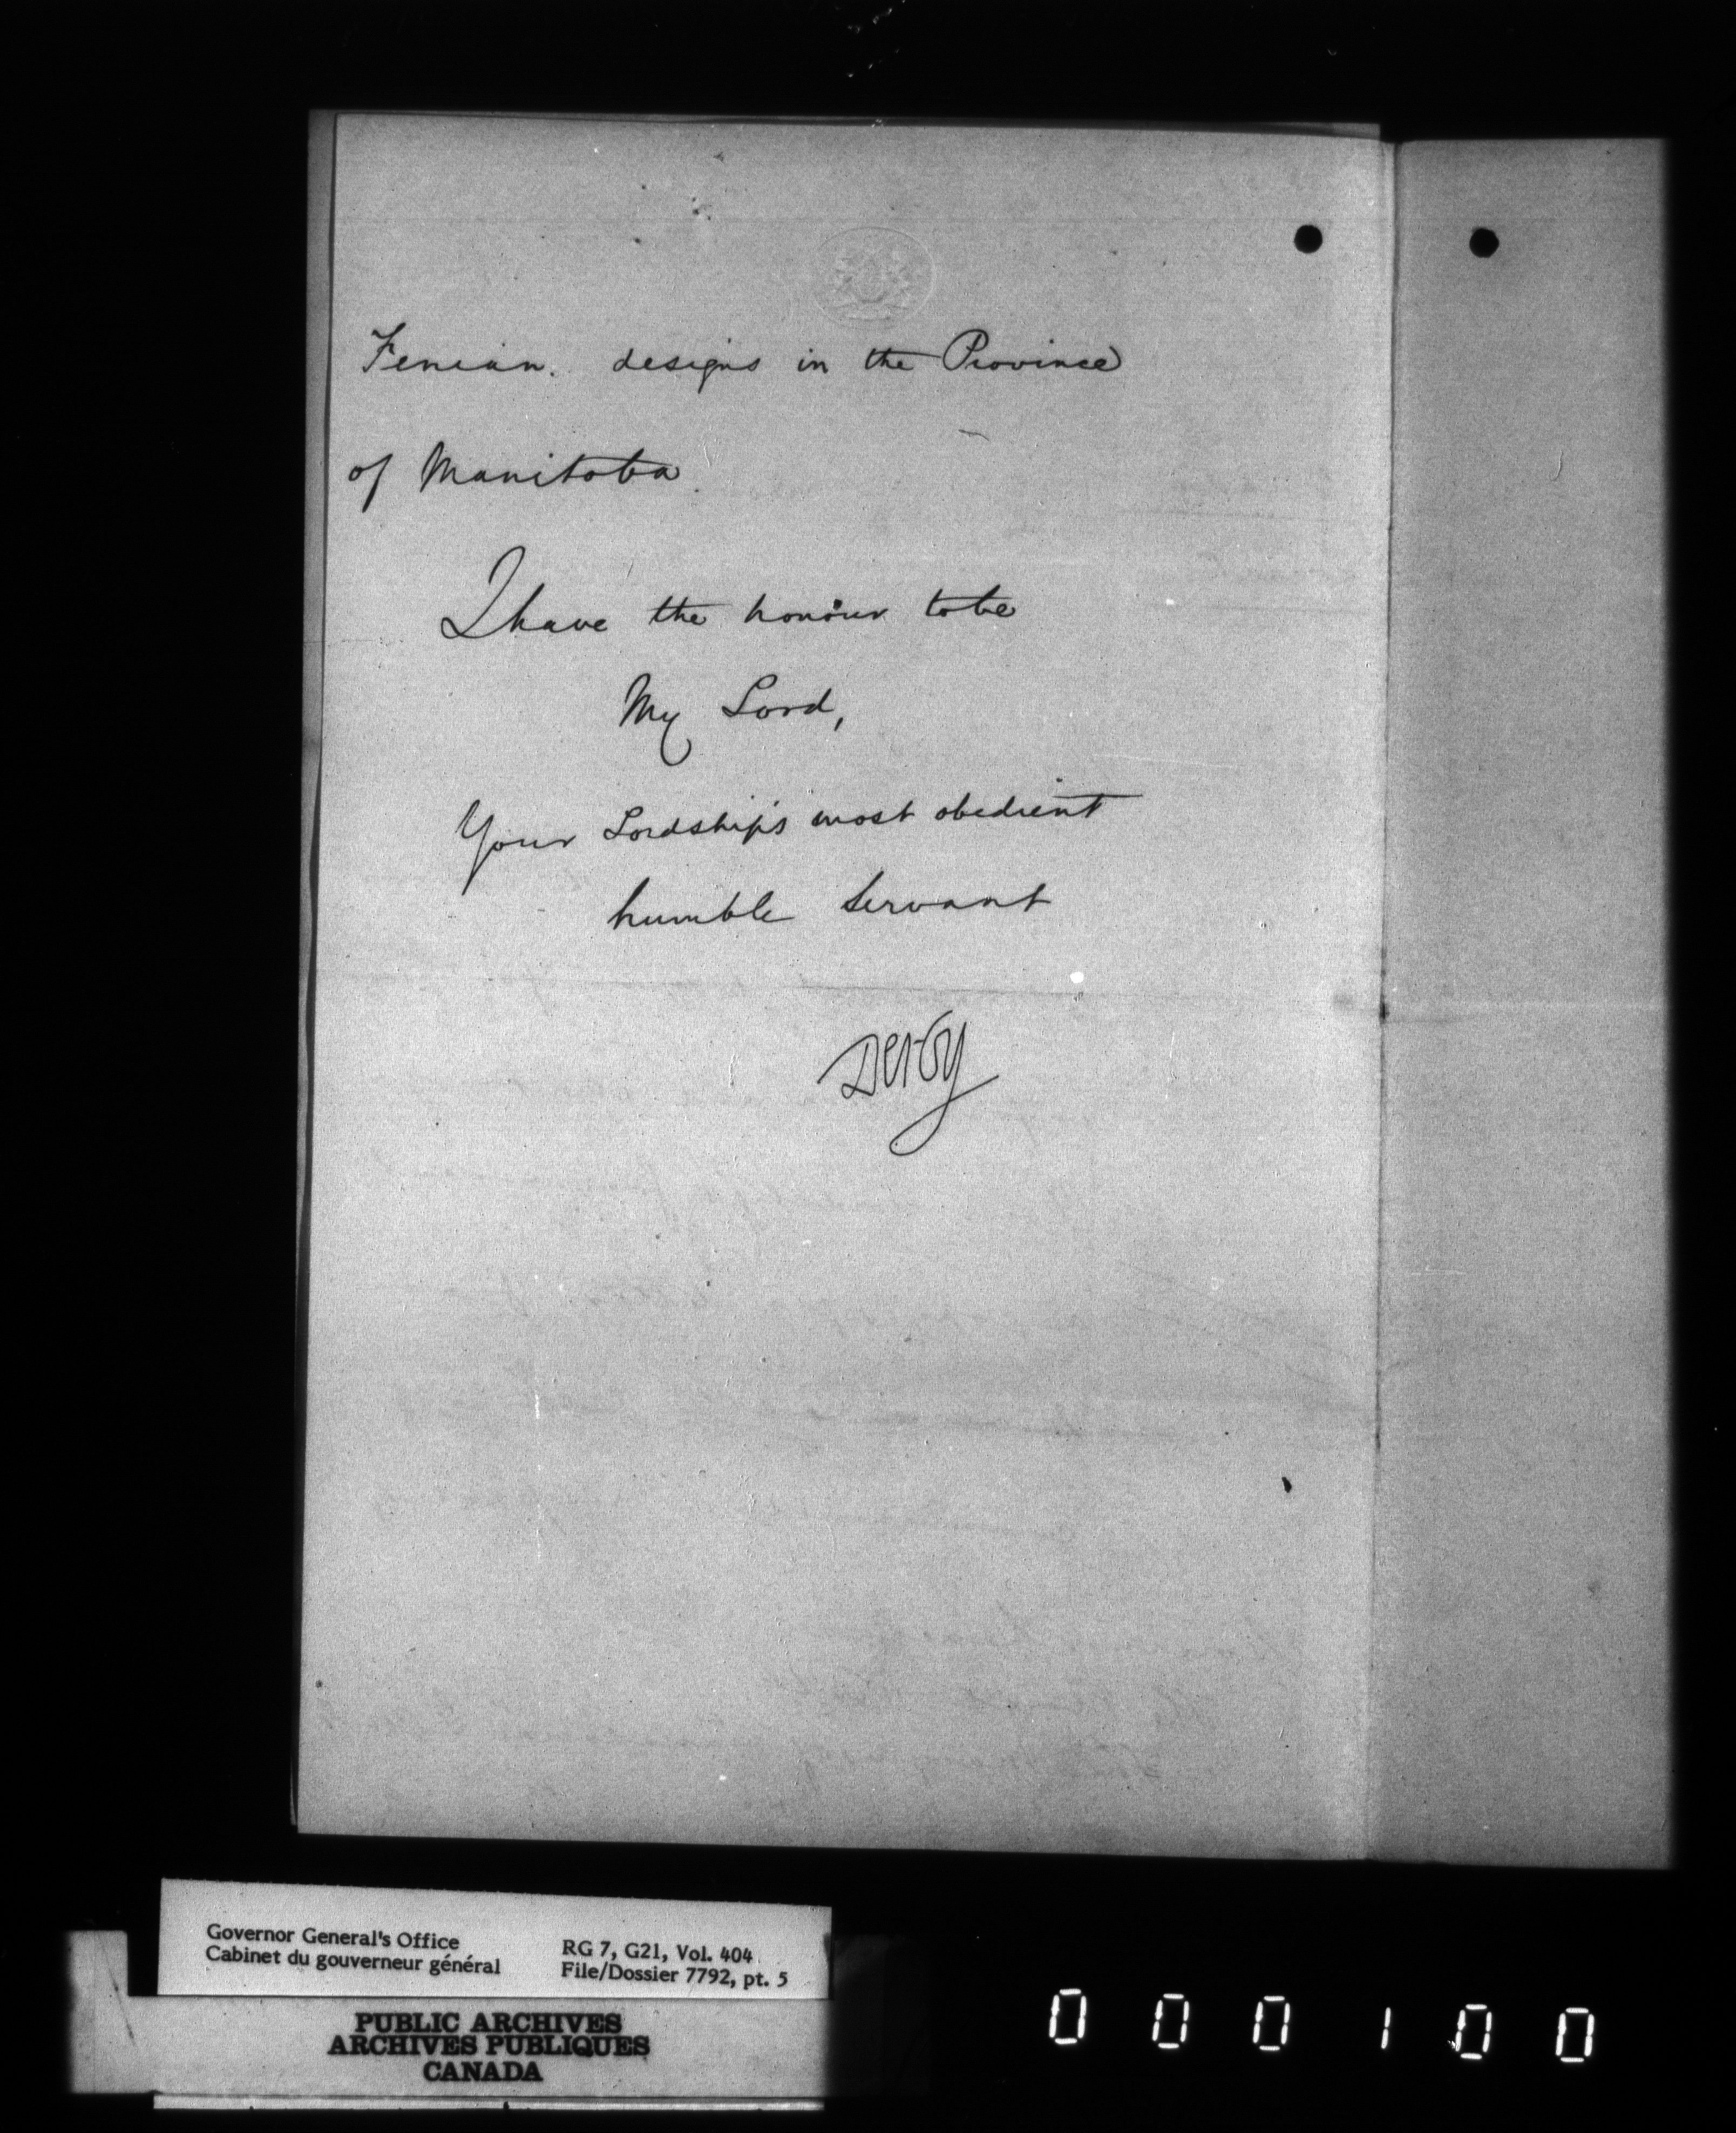 Fenian. designs in the Province
of Manitoba.
I have the honour to be
My Lord,
Your Lordship's most obedient
humble Servant
Derby
Governor General's Office
Cabinet du gouverneur général
RG 7, G21, Vol. 404
File/Dossier 7792, pt. 5
PUBLIC ARCHIVES
ARCHIVES PUBLIQUES
CANADA
000100